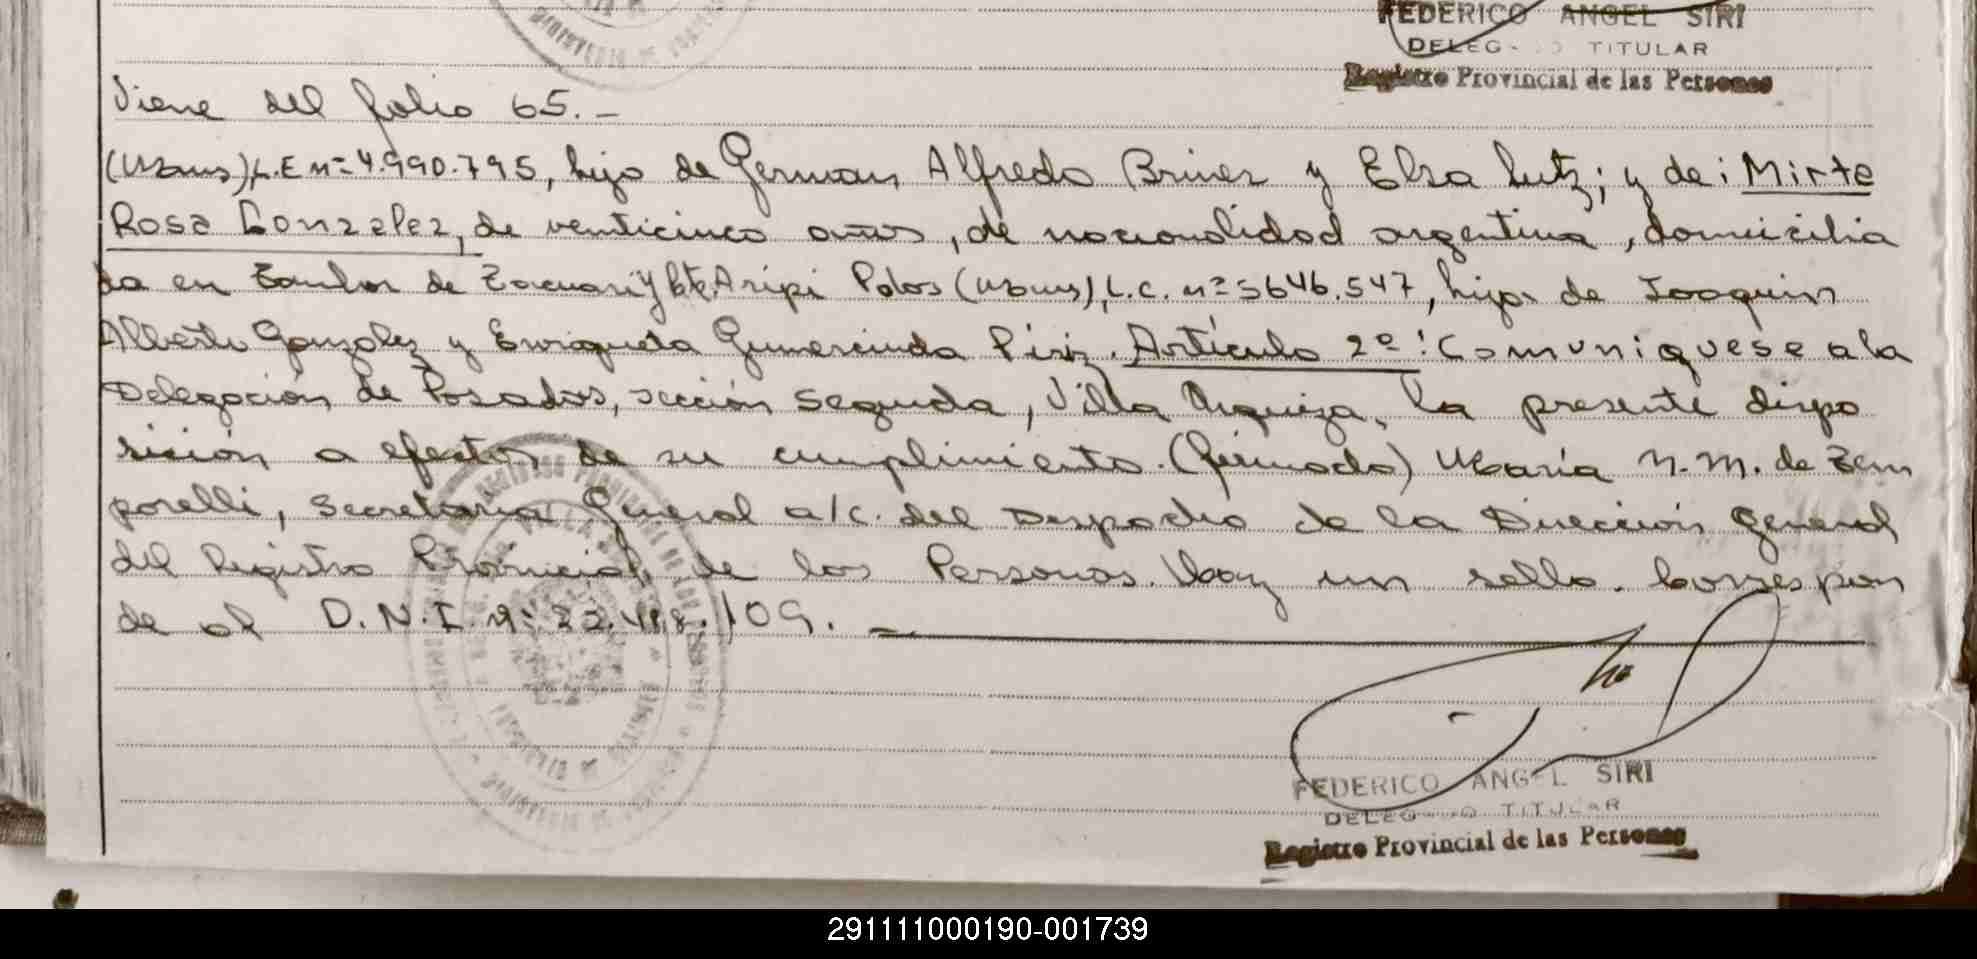 FEDERICO ANGEL SIRI
TITULAR
Registro Provincial de las Personas
Viene del folio 65.-
(Msnes), L.E nº 4.990.795, hijo de German Alfredo Briner y Elsa Lutz; y de: Mirta
Rosa Gonzalez, de venticinco años, de nacionalidad argentina, domicilia
da en de y Aripi Palos (Msnes), L.C. nº 5646.547, hija de Joaquin
Alberto Gonzalez y Enriqueta Gumercinda Piriz. Artículo 2º: Comuniquese a la
Delegación de Posadas, sección segunda, Villa Urquiza, la presente dispo
sición a efectos de su cumplimiento. (firmado) María N. M. de Zam
porelli, Secretaria General a/c. del Despacho de la Dirección General
del Registro Provincial de las Personas. Hay un sello. Correspon
de al D.N.I. nº 22.418.109. -
FEDERICO ANGEL SIRI
TITULAR
Registro Provincial de las Personas
291111000190-001739